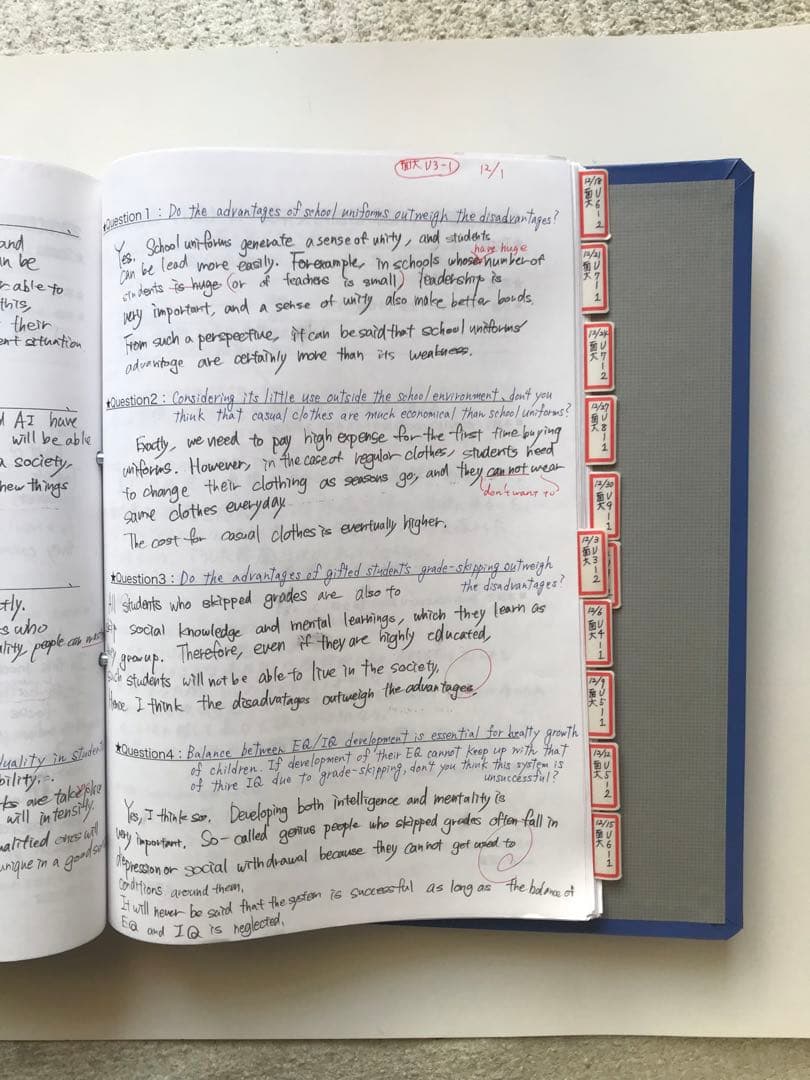 面大 U3-1 12/1
★Question1 : Do the advantages of school uniforms outweigh the disadvantages?
Yes. School uniforms generate a sense of unity, and students
have huge
can be lead more easily. For example, in schools whose number of
students is huge (or of teachers is small) leadership is
very important, and a sense of unity also make better bonds.
From such a perspective, it can be said that school uniforms'
advantage are certainly more than its weakness.
★Question2 : Considering its little use outside the school environment, don't you
think that casual clothes are much economical than school uniforms?
Exactly, we need to pay high expense for the first time buying
uniforms. However, in the case of regular clothes, students need
to change their clothing as seasons go, and they can not wear
don't want to
same clothes everyday
The cost for casual clothes is eventually higher.
★Question3 : Do the advantages of gifted student's grade-skipping outweigh
the disadvantages?
All students who skipped grades are also to
skip social knowledge and mental learnings, which they learn as
they grow up. Therefore, even if they are highly educated,
such students will not be able to live in the society.
Hence I think the disadvatages outweigh the advantages.
★Question4 : Balance between EQ/IQ development is essential for healty growth
of children. If development of their EQ cannot keep up with that
of thire IQ due to grade-skipping, don't you think this system is
unsuccessful?
Yes, I think so. Developing both intelligence and mentality is
very important. So-called genius people who skipped grades often fall in
depression or social withdrawal because they can not get used to
conditions around them.
It will never be said that the system is successful as long as the balance of
EQ and IQ is neglected.
and
an be
able to
this,
their
ent situation
AI have
will be able
a society,
new things
tly.
s who
ality, people can
duality in student
bility.
ts are take place
will intensify.
ualified ones will
unique in a good
12/18 面大 U6-2
12/21 面大 U7-1
12/24 面大 U7-2
12/27 面大 U8-1
12/30 面大 U9-1
12/3 面大 U3-2
12/6 面大 U4-1
12/9 面大 U5-1
12/12 面大 U5-2
12/15 面大 U6-1